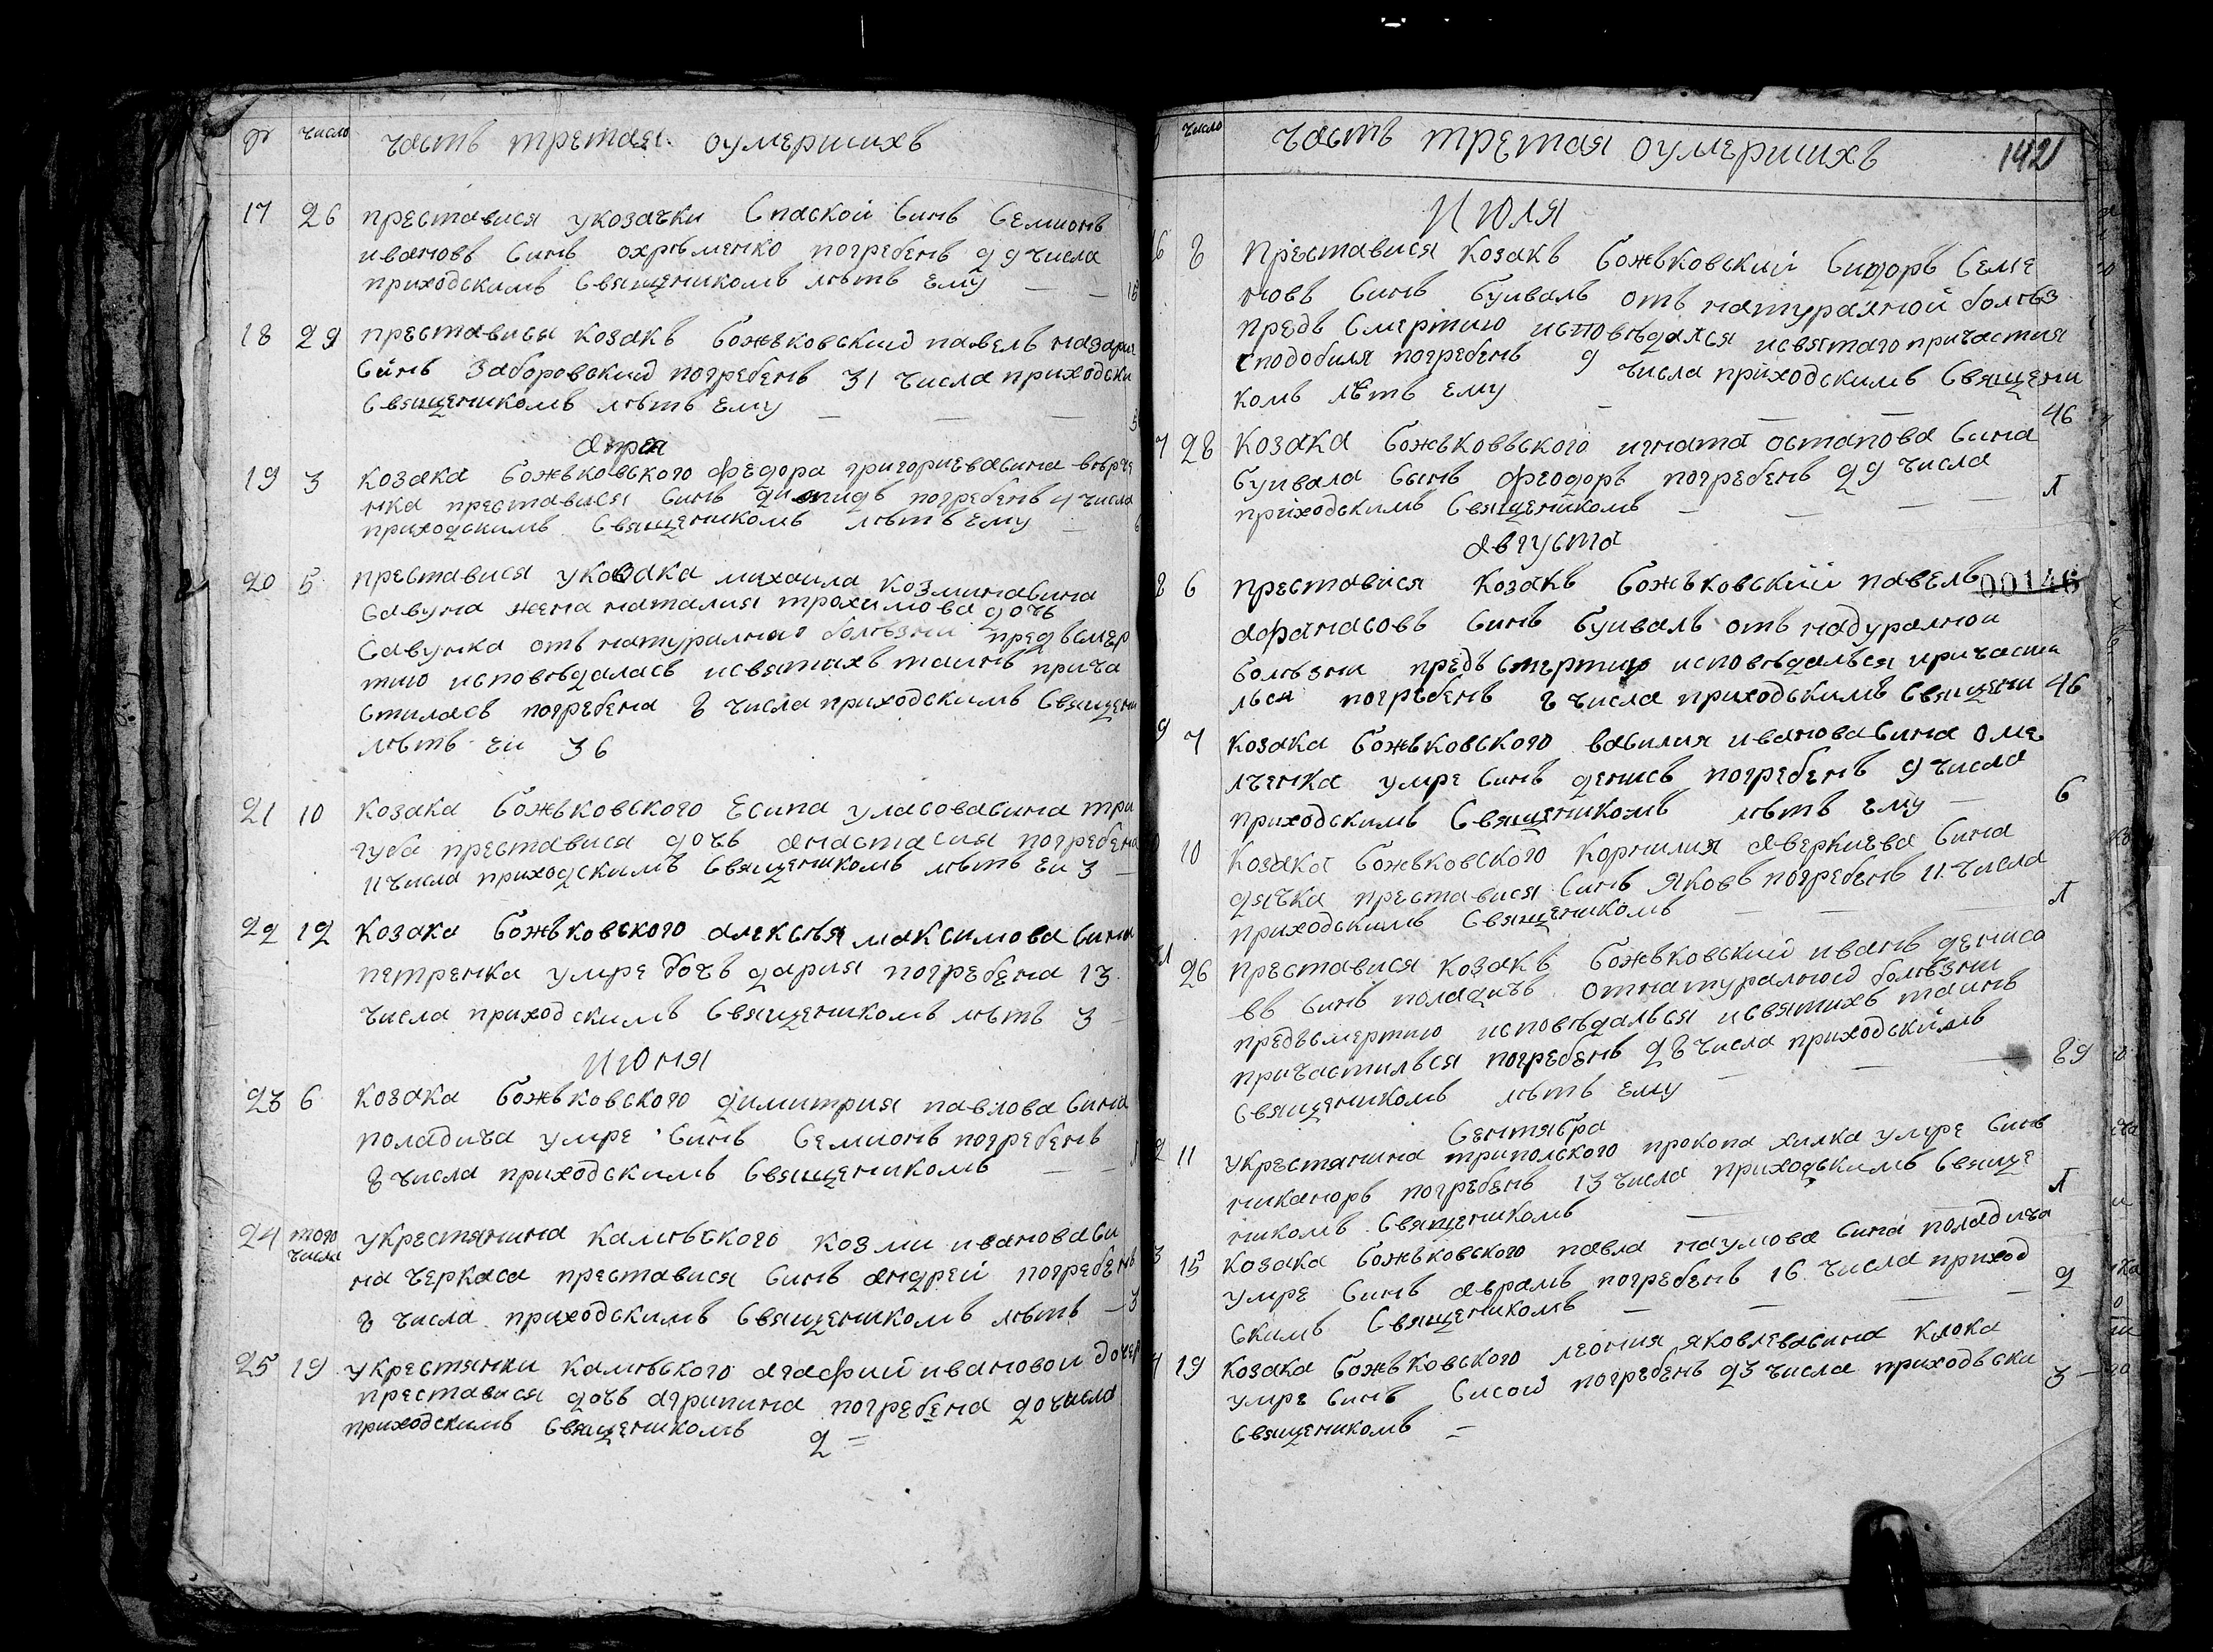 № число часть третая оумершихъ
17 26 преставися укозачки Спаской Синъ Семионъ
ивановъ Синъ охрѣменко погребенъ 29 числа
приходскимъ Священикомъ лѣтъ ему — —
18 29 преставися козакъ Божъковский павелъ назари
Синъ Заборовский погребенъ 31 числа приходски
Священикомъ лѣтъ ему — — —
19 3 козака Божъковъского федора григориева Сина
нка преставися Синъ погребенъ 4 числа
приходскимъ Священикомъ лѣтъ ему — 6
20 5 преставися укозака михаила козмина Сина
Савуна жена наталия трохимова дочь
Савунка отъ натуралнаго болѣзни предъ смер
тию исповѣдалась исвятахъ таинъ прича
стилась погребена 8 числа приходскимъ Священи
лѣтъ еи 36
21 10 козака Божъковского Есипа уласова Сина три
губа преставися дочь анастасия погребена
11 числа приходскимъ Священикомъ лѣтъ еи 3 —
22 12 козака Божъковского алексѣя максимова Сина
петренка умре дочъ дария погребена 13
числа приходскимъ Священикомъ лѣтъ 3 —
июня
23 6 козака Божъковского димитрия павлова Сина
поладича умре Синъ Семионъ погребенъ
8 числа приходскимъ Священикомъ — —
24 того числа укрестянина калнѣского козми иванова Си
на черкаса преставися Синъ андрей погребенъ
8 числа приходскимъ Священикомъ лѣтъ — 3
25 19 укрестянки калнѣского агафий ивановои дочер
преставися дочъ агрипина погребена 20 числа
приходскимъ Священикомъ 2 =
число часть третая оумершихъ 142
Июля
6 8 Преставися козакъ Божъковский Сидоръ Семе
новъ Синъ Буивалъ отъ натуралной болѣз
предъ Смертию исповѣдался исвятаго причастия
сподобиля погребенъ 9 числа приходскимъ Священи
комъ лѣтъ ему — — — 46
7 28 козака Божъковъского игната остапова Сина
Буивала Сынъ феодоръ погребенъ 29 числа
приходскимъ Священикомъ — — — л
августа
8 6 преставися козакъ Божъковский павелъ 00146
афанасовъ Синъ Буивалъ отъ надуралнои
болѣзни предъ Смертию исповѣдалься ипричасти
лься погребенъ 8 числа приходскимъ Священи 46
9 7 козака Божъковского василия иванова Сина оме
лченка умре Синъ денисъ погребенъ 9 числа
приходскимъ Священикомъ лѣтъ ему — 6
10 козака Божъковского корнилия аверкиева Сина
дячка преставися Синъ Яковъ погребенъ 11 числа
приходскимъ Священикомъ — — л
26 преставися козакъ Божъковский иванъ дениso
въ Синъ поладичъ отнатуралноий болѣзни
предъсмертию исповѣдалься исвятихъ таинъ
причастилься погребенъ 28 числа приходскимъ
Священикомъ лѣтъ ему — — — 89
Сентября
2 11 укрестянина трипольского прокопа хилка умре Синъ
никаноръ погребенъ 13 числа приходскимъ Свяще
никомъ Священикомъ — — — л
3 15 козака Божъковского павла наумова Сина поладича
умре Синъ аврамъ погребенъ 16 числа приход
скимъ Священикомъ — — — 2
4 19 козака Божъковского леония яковлева Сина клока
умре Синъ Сисой погребенъ 23 числа приходъски
Священикомъ — 3 —